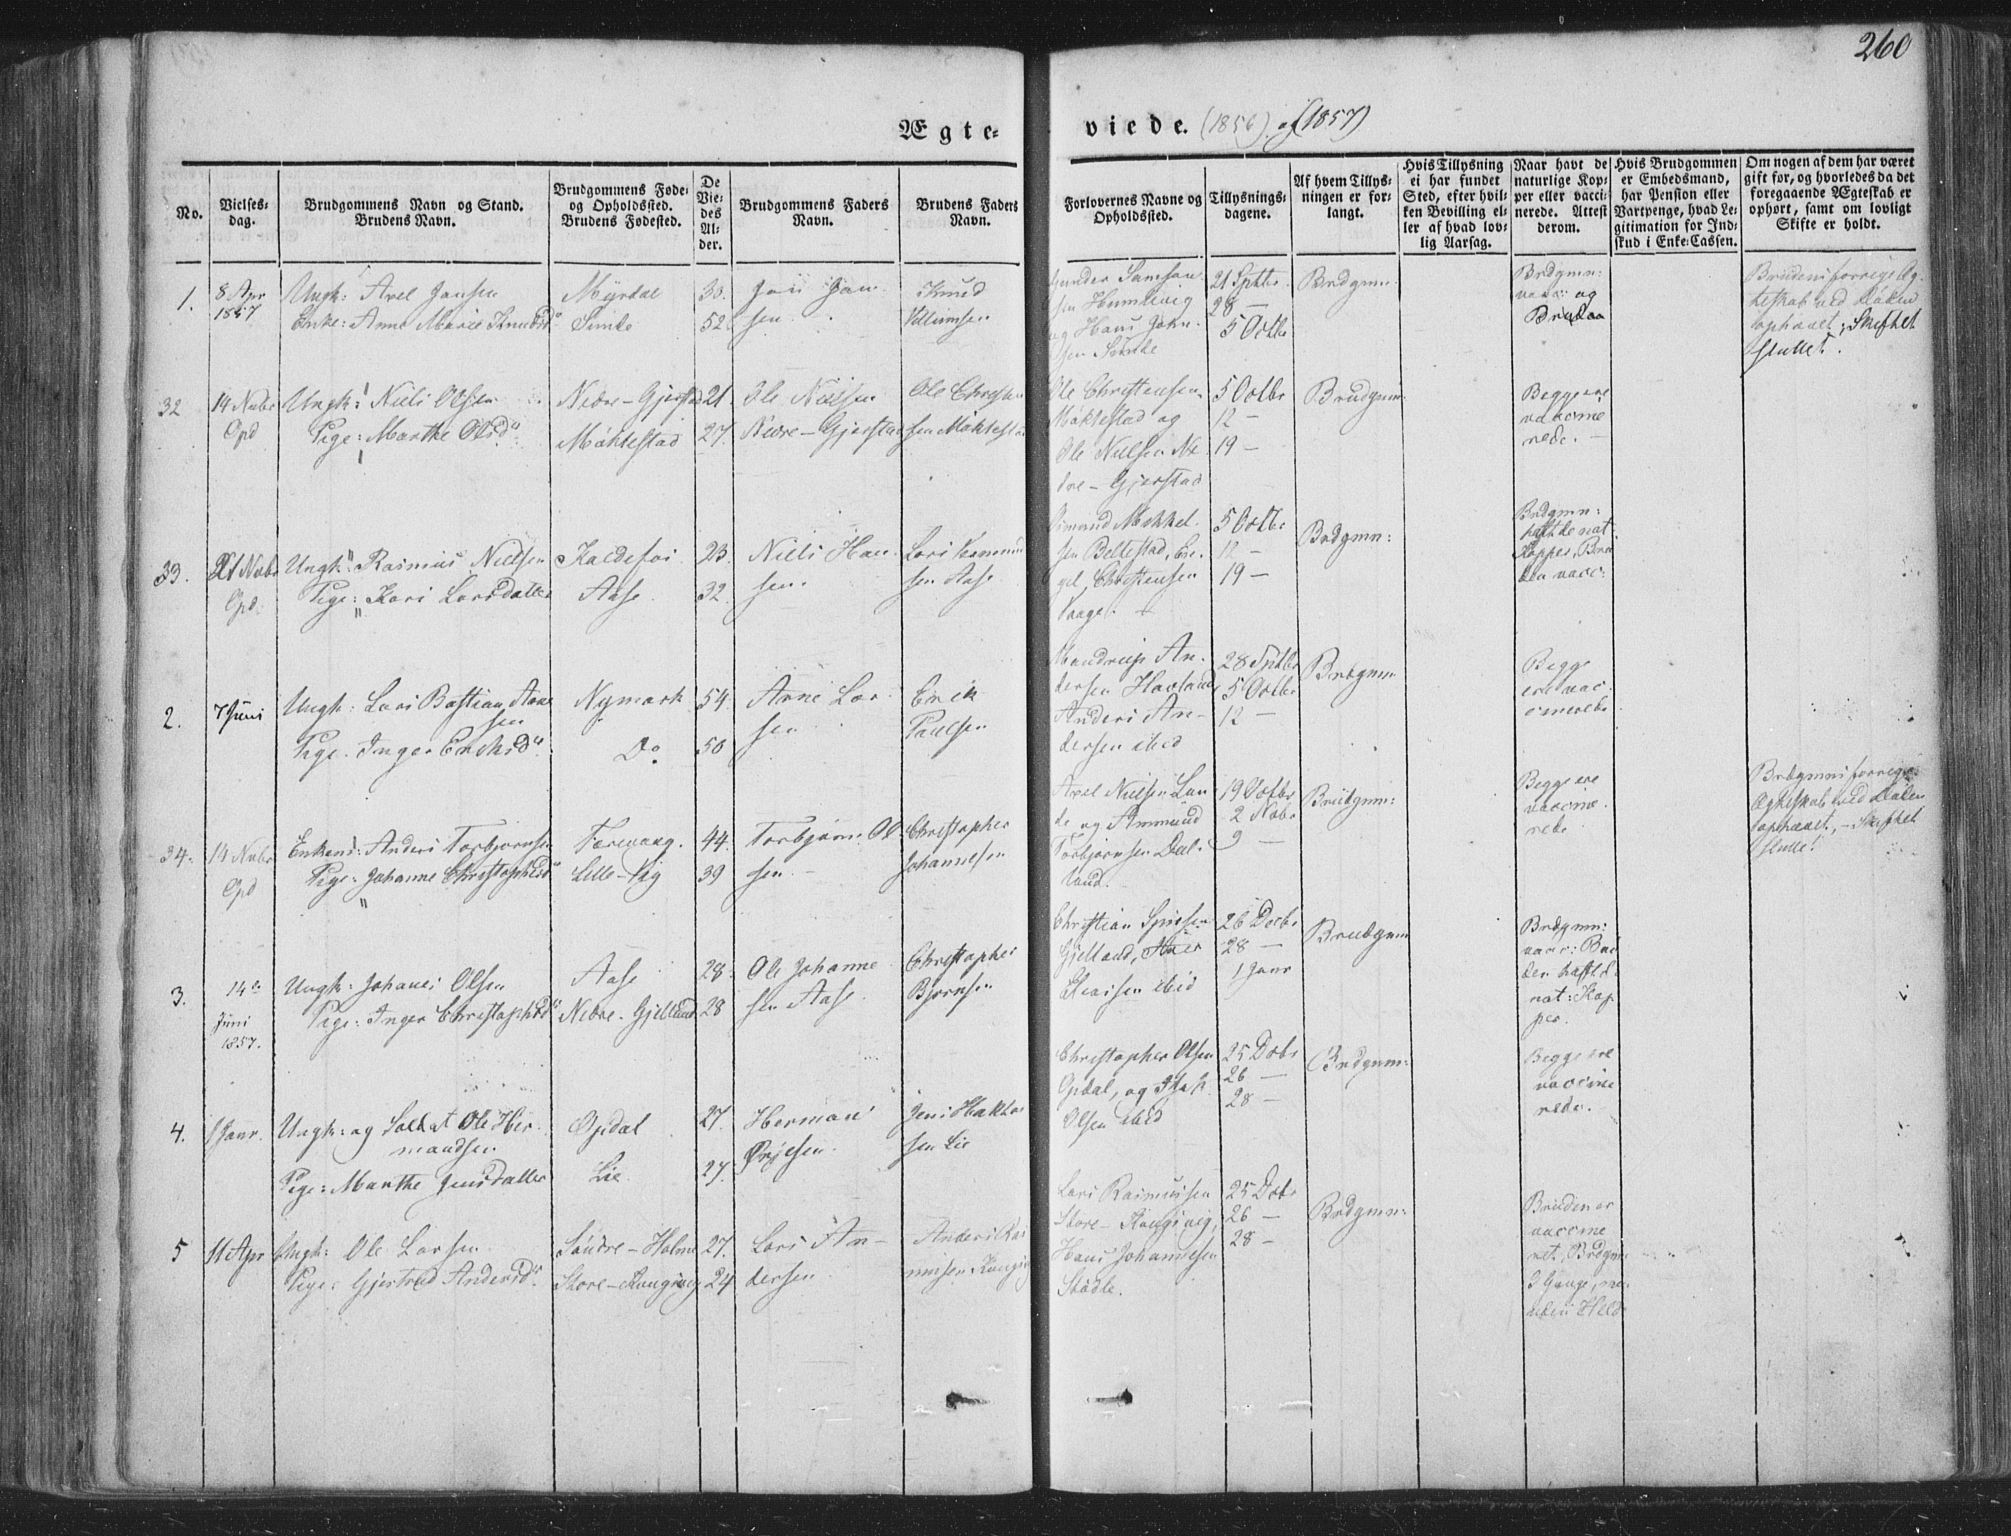 260
Ægte-
viede. (1856) og (1857)
No.
Vielses-
dag.
Brudgommens Navn og Stand.
Brudens Navn.
Brudgommens Føde-
og Opholdssted.
Brudens Fødested.
De
Vie-
des
Al-
der.
Brudgommens Faders
Navn.
Brudens Faders
Navn.
Forlovernes Navne og
Opholdssted.
Tillysnings-
dagene.
Af hvem Tillys-
ningen er for-
langt.
Hvis Tillysning
ei har fundet
Sted, efter hvil-
ken Bevilling el-
ler af hvad lov-
lig Aarsag.
Naar havt de
naturlige Kop-
per eller vacci-
nerede. Attest
derom.
Hvis Brudgommen
er Embedsmand,
har Pension eller
Vartpenge, hvad Le-
gitimation for Ind-
skud i Enke-Cassen.
Om nogen af dem har været
gift før, og hvorledes da det
foregaaende Ægteskab er
ophørt, samt om lovligt
Skifte er holdt.
1.
8 Apr
1857
Ungk: Axel Jansen
Enke: Anne Marie Knudsd
Myrdal
30.
52
Jan Jan
sen
Knud
Villumsen
Gunder Samson
sen
og Hans John
sen
21 Sptbr
28 —
5 Octbr
Brdgmn
Brdgmn:
vacc: og
Bruden
Brudens forrige Æg
teskab ved Døden
ophævet, Skiftet
sluttet.
32
14 Nvbr
Opd
Ungk: Niels Olsen
Pige: Marthe Olsd
Nedre-Gjerstad
Möktestad
21.
27.
Ole Nielsen
Nedre-Gjerstad
Ole Christen
sen Möktestad
Ole Christensen
Möktestad og
Ole Nielsen Ne
dre-Gjerstad
5 Octbr
12 —
19 —
Brudgmn:
Begge ere
vaccine
rede.
33.
21 Nvbr
Opd.
Ungk: Rasmus Nielsen
Pige: Kari Larsdatter
Kaldefos
Aase
23.
32.
Niels Han
sen.
Lars
sen Aase
Mikkel
sen Beltestad,
Christensen
Vaage.
5 Octbr
12 —
19 —
Brdgmn:
Brdgmn:
hafte nat
Kopper, Bru
den vacc:
2.
7 Juni
Ungk: Lars Bastian Arne
sen
Pige: Inger Eriksd
Nymark
Do
54.
50
Arne Lar
sen
Erik
Paulsen
Mandrup An
dersen Havland
Anders An-
dersen ibid
28 Sptbr
5 Octbr
12 —
Brdgmn
Begge
ere vac
cinerede
34.
14 Nvbr
Opd
Enkem: Anders Torbjørnsen
Pige: Johanne Christophersd
Færevaag.
Lille-Vig
44.
39
Torbjørn Ol
sen
Christopher
Johannesen
Axel Nielsen Lun
de og Ammund
Torbjørnsen Dal-
land.
19 Octbr
2 Nvbr
9 —
Brudgmn:
Begge ere
vaccine
rede.
Brdgmns forrige
Ægteskab ved Døden
ophævet, — Skiftet
sluttet.
3.
14de
Juni
1857.
Ungk: Johanes Olsen
Pige: Inger Christophersd
Aase
Nedre-Gjelland
28.
28
Ole Johanne
sen Aase
Christopher
Bjørnsen
Christian
Gjelland,
ibid
26 Decbr
28 —
1 Janr
Brudgmn
Brdgmn:
vacc: Bru
den hafte
nat: Kop
per.
4.
1 Janr.
Ungk: og Soldat Ole Her
mandsen
Pige: Marthe Jensdatter
Opdal
Lie
27.
27.
Herman
Ørjesen
Jens Haktor
sen Lie
Christopher Olsen
Opdal, og
Olsen ibid
25 Dcbr
26 —
28 —
Brudgmn:
Begge ere
vaccine
rede.
5
11 Apr
Ungk: Ole Larsen
Pige: Gjertrud Andersd
Søndre-Holme
Store-Kongsvig
27.
24
Lars An-
dersen
Anders Ras
musen Kongsvig
Lars Rasmussen
Store-Kongsvig,
Hans Johannesen
Stödle.
25 Dcbr
26 —
28 —
Brdgmn:
Bruden er
vaccine
ret, Brdgmn
3 Gange,
uden Held